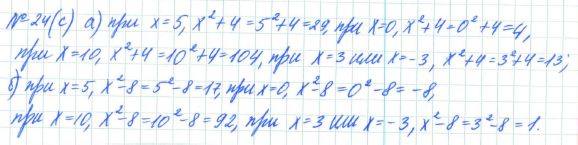 № 24(с) а) при x=5, x²+4=5²+4=29, при x=0, x²+4=0²+4=4,
при x=10, x²+4=10²+4=104, при x=3 или x=-3, x²+4=3²+4=13;
б) при x=5, x²-8=5²-8=17, при x=0, x²-8=0²-8=-8,
при x=10, x²-8=10²-8=92, при x=3 или x=-3, x²-8=3²-8=1.